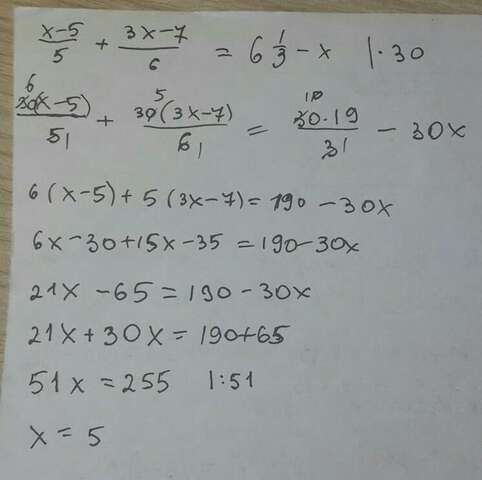 x-5/5 + 3x-7/6 = 6 1/3 - x |·30
6 30(x-5)/5 1 + 5 30(3x-7)/6 1 = 10 30·19/3 1 - 30x
6(x-5)+5(3x-7)=190-30x
6x-30+15x-35=190-30x
21x-65=190-30x
21x+30x=190+65
51x=255 |:51
x=5